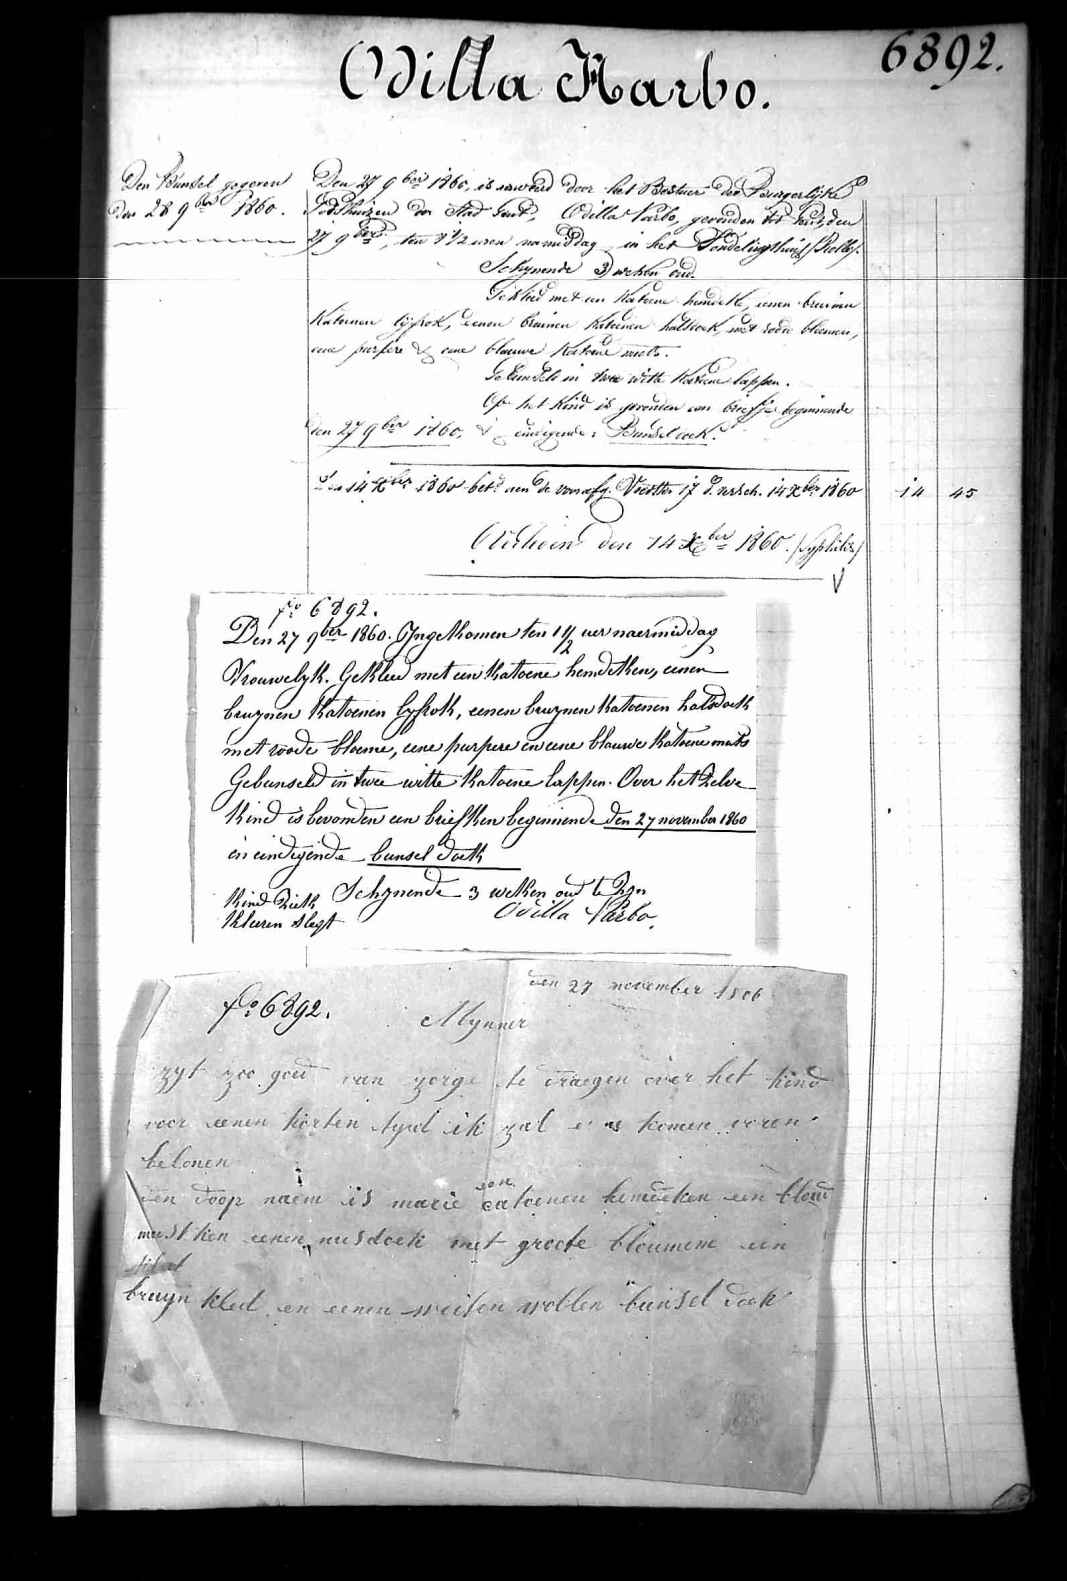 6892.
Odilla Harbo.
Den Bunsel gegeven
den 28 9ber 1860.
Den 27 9ber 1860, is aanveird door het Bestuur der Burgerlijke
Godshuizen der Stad Gent, Odilla Harbo, gevonden tot Gent, den
27 9ber, ten 1 1/2 uren namiddag in het Vondelingshuis /Rolle/.
Schynende 3 weken oud.
Gekleed met een katoene hemdeke, eenen bruinen
katoenen lijfrok, eenen bruinen katoenen halsdoek, met roode bloemen,
eene purpere & eene blauwe katoene muts.
Gebunseld in twee witte katoene lappen.
Op het kind is gevonden een briefje beginnende
den 27 9ber 1860, & eindigende: Bunsel doek.
Den 14 Xber 1860 bet. aen de voorafg. 17 d. versch. 14 Xber 1860 14 45
Overleden den 14 Xber 1860. /syphilis/
fo 6892.
Den 27 9ber 1860. Ingekomen ten 1 1/2 uer naermiddag
Vrouwelyk. Gekleed met een katoene hemdeken, eenen
bruynen katoenen lyfrok, eenen bruynen katoenen halsdoek
met roode bloeme, eene purpere en eene blauwe katoene muts
Gebunseld in twee witte katoene lappen. Over het zelve
kind is bevonden een briefken beginnende den 27 november 1860
en eindigende bunsel doek
Schynende 3 weken oud te zyn
kind ziek
kleeren slegt
Odilla Harbo.
den 27 november 1806
fo 6892.
Mynner
zyt zoo goed van zorge te draegen over het kind
voor eenen korten tyd ik zal u komen voren
belonen
den doop naem is marie een catoenen hemdeken een blow
mustken eenen nusdoek met groote bloumene een
bruyn kled en eenen weiten wollen bunsel doek